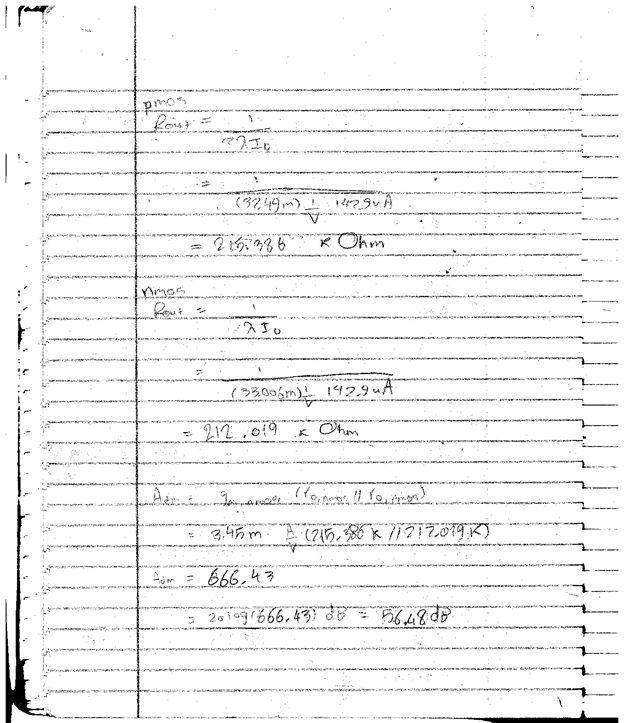 pmos
Rout = 1 / λI_D
= 1 / (32.49m) 1/V 142.9uA
= 215.386 K Ohm
nmos
Rout = 1 / λI_D
= 1 / (33.006m) 1/V 142.9uA
= 212.019 K Ohm
Adm = gm, (ro,nmos // ro,pmos)
= 3.45m A/V (215.386 K // 212.019 K)
Adm = 666.43
= 20log(666.43) dB = 56.48 dB
1